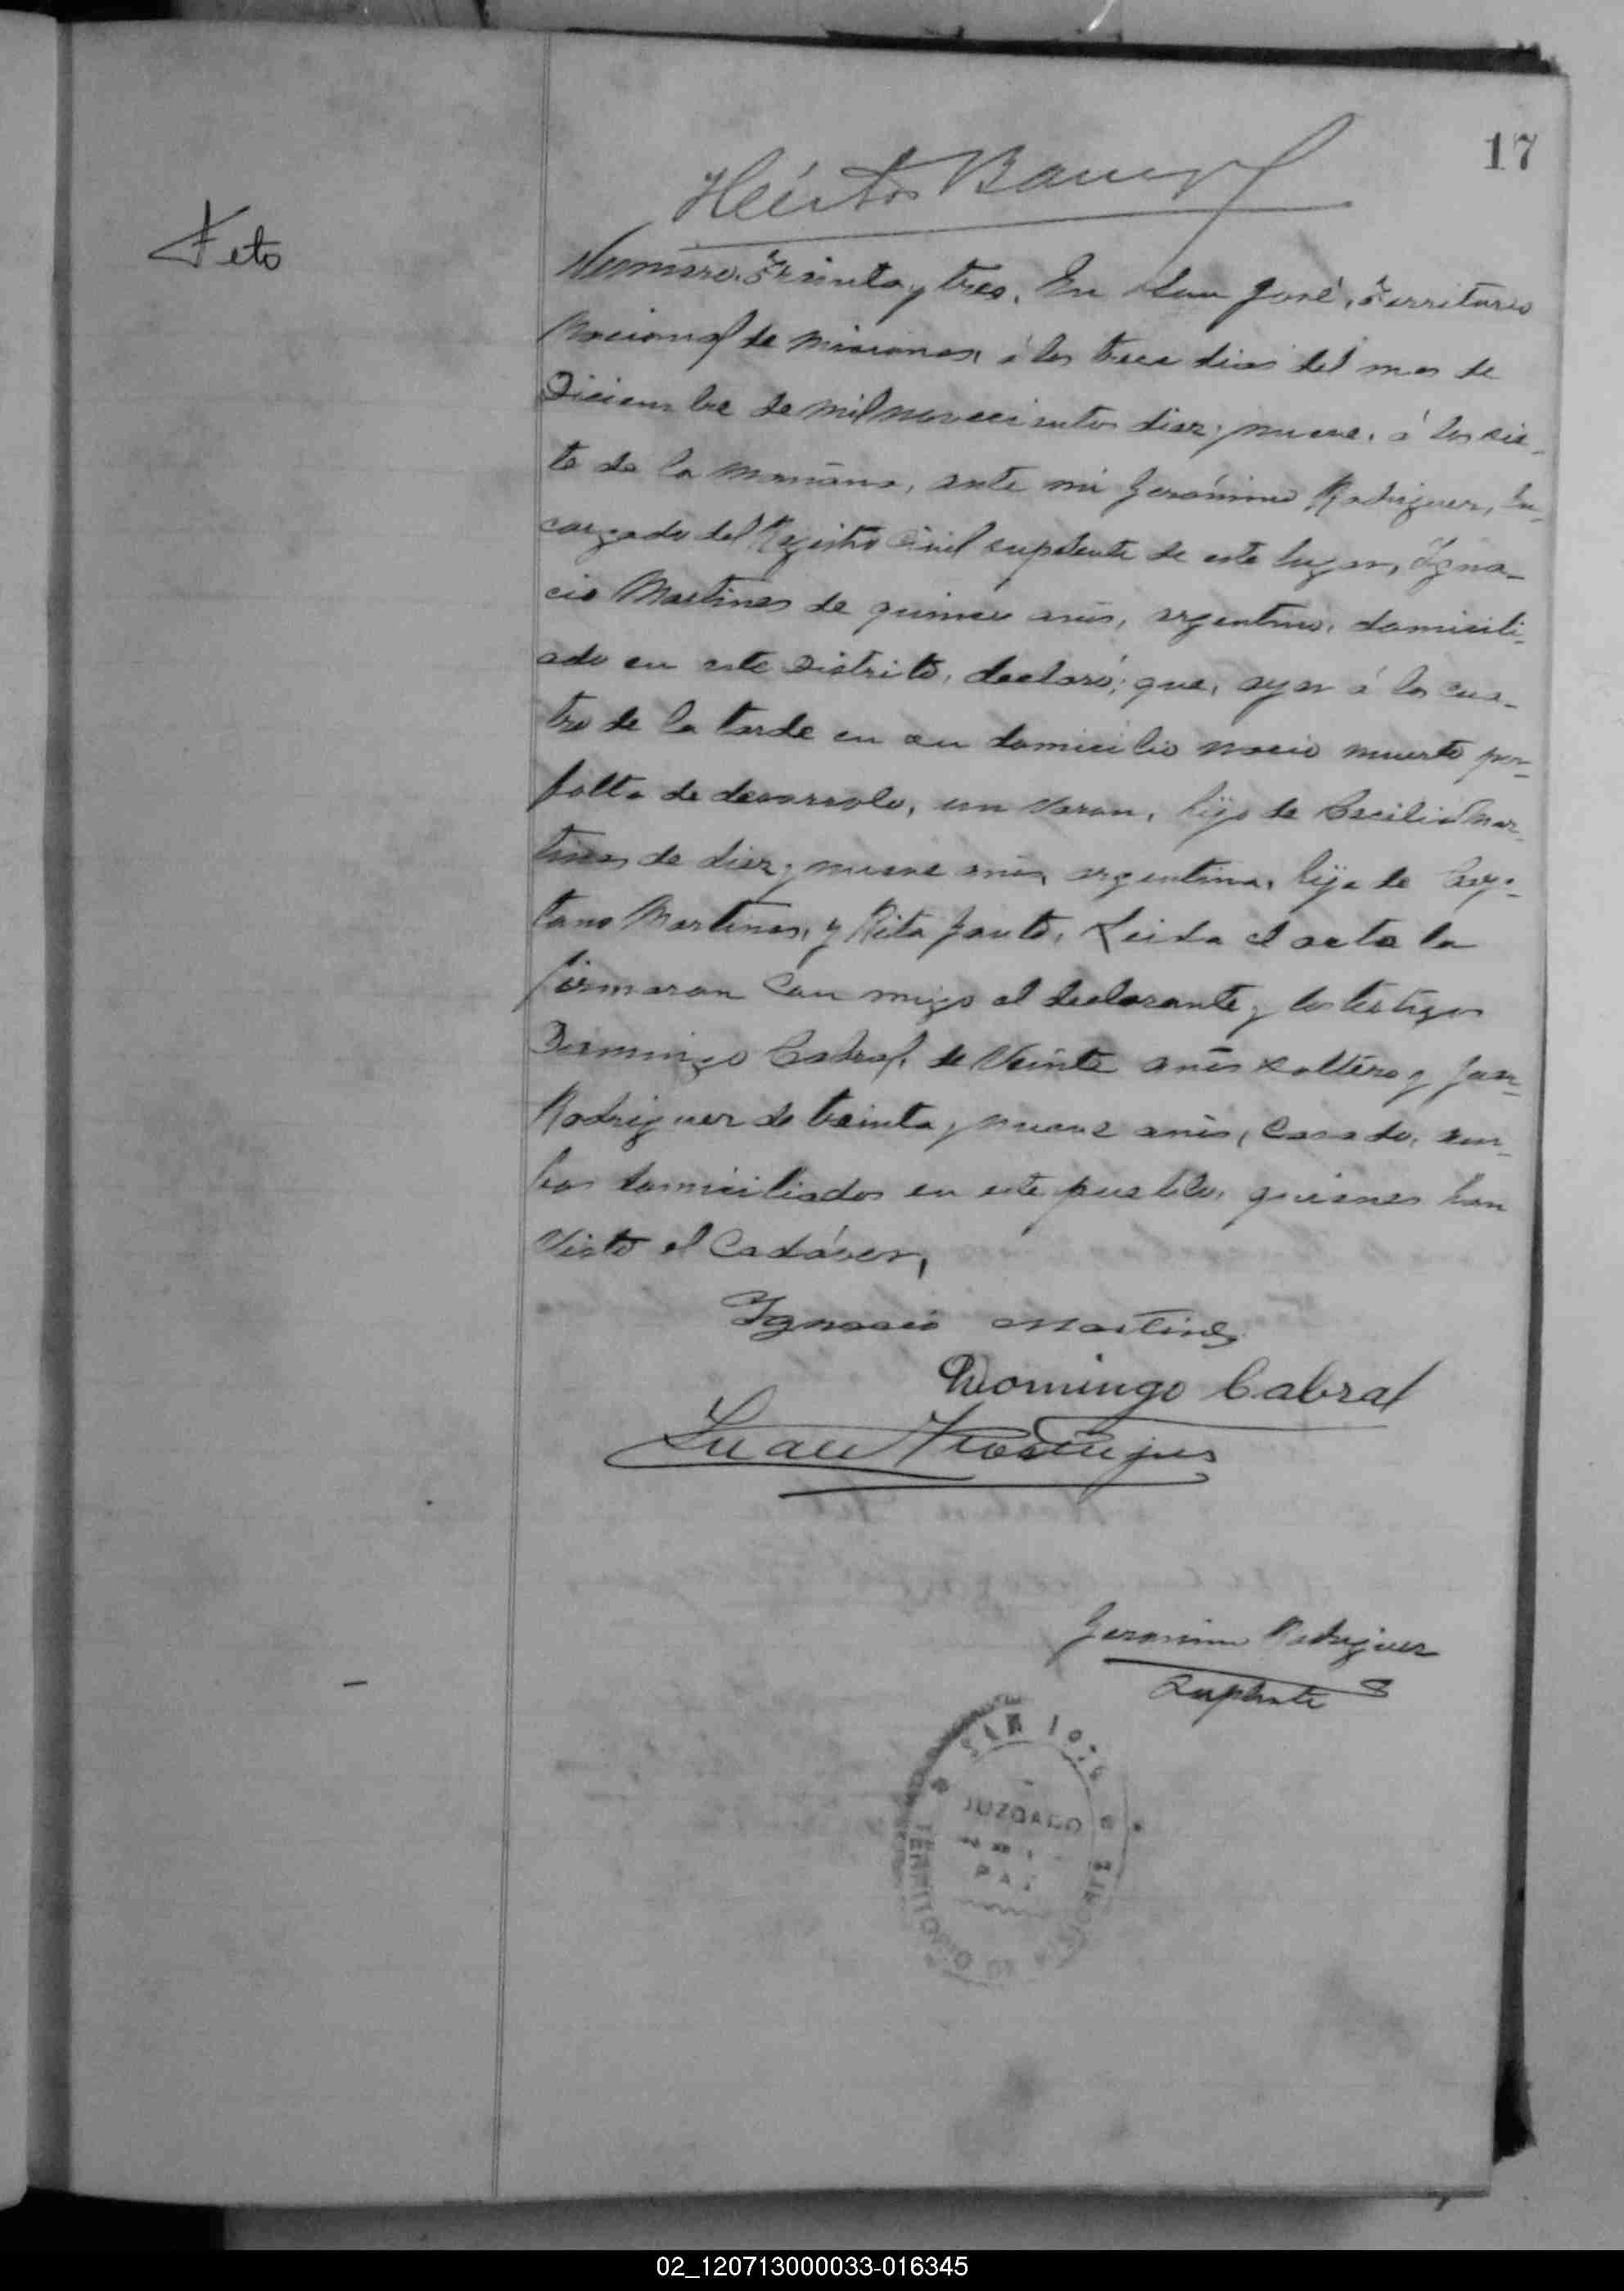 17
Héctor
Feto
Numero Treinta y tres. En San José, Territorio
Nacional de Misiones, á los trece dias del mes de
Diciembre de mil novecientos diez y nueve, á las sie-
te de la mañana, ante mi Gerónimo Rodriguez, En-
cargado del Registro Civil suplente de este lugar, Igna-
cio Martines de quince años, argentino, domicili-
ado en este Distrito, declaró; que, ayer á las cua-
tro de la tarde en su domicilio nacio muerto por
falta de desarrolo, un varon, hijo de Cecilia Mar-
tines, de diez y nueve años, argentina, hija de Caye-
tano Martines, y Rita Leida el acta la
firmaron con migo el declarante y los testigos
Domingo Cabral, de veinte años soltero y Juan
Rodriguez de treinta y nueve años, casado, am-
bos domiciliados en este pueblo, quienes han
visto el cadáver,
Ignacio Martines
Domingo Cabral
Juan
Geronimo Rodriguez
Suplente
SAN JOSÉ
JUZGADO
PAZ
TERRITORIO
02_120713000033-016345